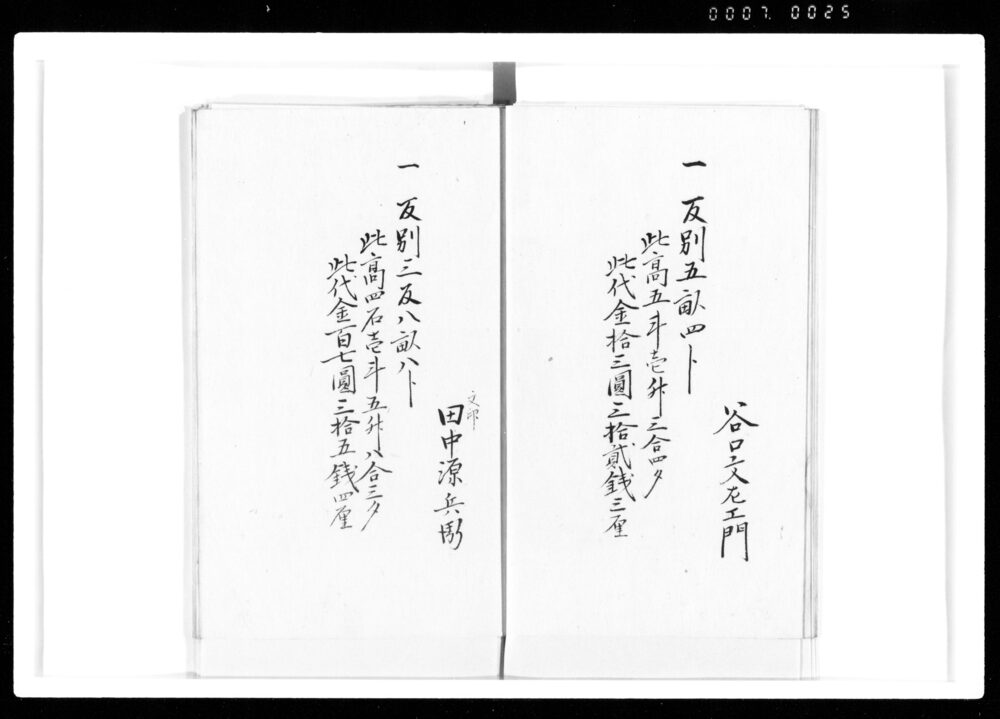 0007. 0025
谷口文左エ門
一 反別五畝四卜
此高五斗壱升三合四夕
此代金拾三圓三拾貳銭三厘
文印
田中源兵衛
一 反別三反八畝八卜
此高四石壱斗五升八合三夕
此代金百七圓三拾五銭四厘